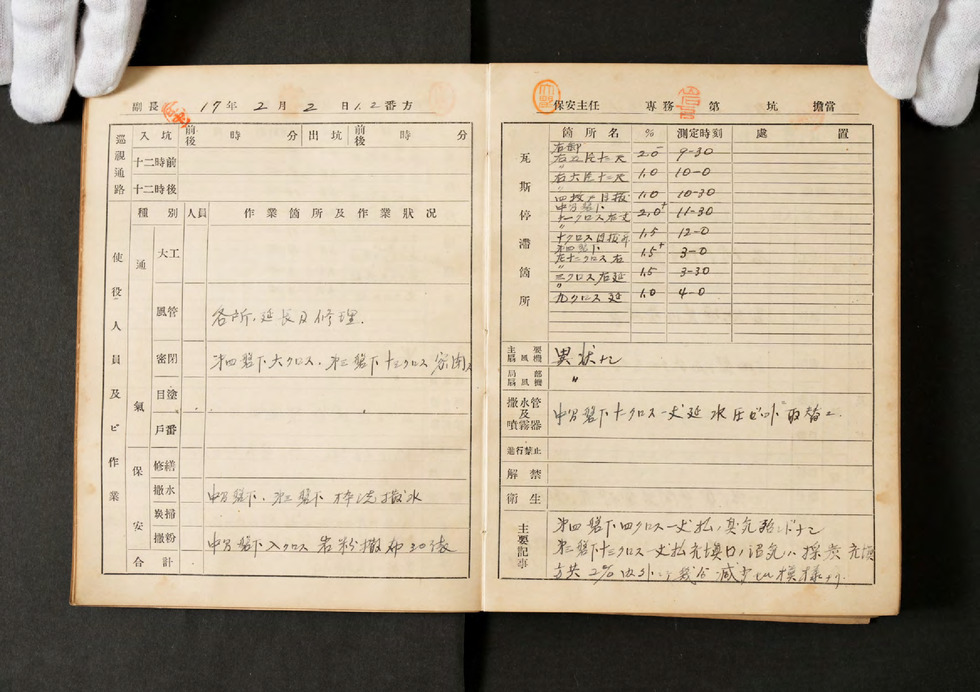 副長 17年 2月 2日 1.2番方
巡視通路 入坑 前後 時 分 出坑 前後 時 分
十二時前
十二時後
使役人員及ビ作業
種別 人員 作業箇所及作業狀況
通氣
大工
風管 各所、延長及修理.
密閉 第四盤下 大クロス、第三盤下 十三クロス 密閉
目塗
戶番
保安
修繕
撒水 中部盤下、第三盤下 撒水
炭掃
撒粉 中部盤下 入クロス 岩粉撒布 30俵
合計
保安主任 專務 第 坑 擔當
瓦斯停滯箇所
箇所名 % 測定時刻 處置
右卸
右五片十一尺 2.0 9-30
〃
右六片十二尺 1.0 10-0
1.0 10-30
中部盤下
2.0+ 11-30
〃
1.5 12-0
第四盤下
左十二クロス 右 1.5+ 3-0
〃
三クロス 右延 1.5 3-30
〃
九クロス 延 1.0 4-0
主要扇風機 異狀ナシ
局部扇風機 〃
撒水管及噴霧器 中部盤下 十クロス 一丈延 水圧 取替
進行禁止
解禁
衛生
主要記事
第四盤下 四クロス 一丈払、
第三盤下 十三クロス 一丈払 採炭
方共 2% 内外 減少 模樣ナリ.